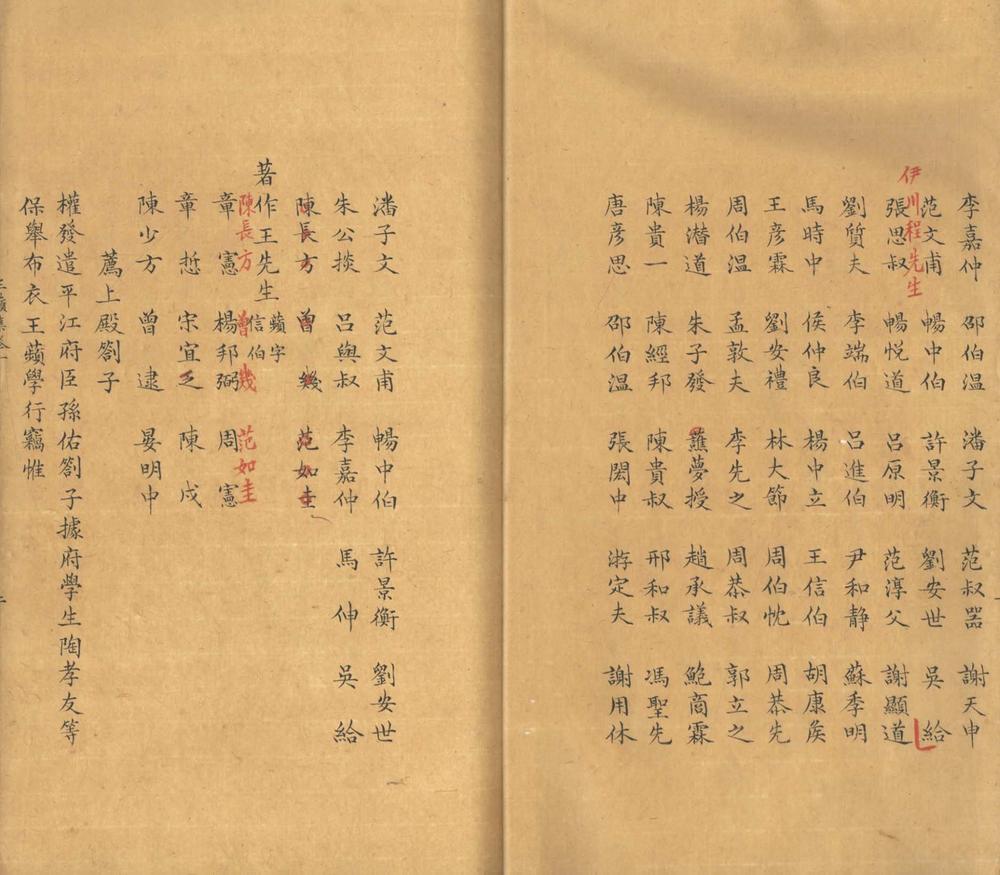 李嘉仲 邵伯温 潘子文 范叔噐 謝天申
范文甫 暢中伯 許景衡 劉安世 吳 給
伊川程先生
張思叔 暢悦道 吕原明 范淳父 謝顯道
劉質夫 李端伯 吕進伯 尹和靜 蘇季明
馬時中 侯仲良 楊中立 王信伯 胡康侯
王彦霖 劉安禮 林大節 周伯忱 周恭先
周伯温 孟敦夫 李先之 周恭叔 郭立之
楊潛道 朱子發 譙夢授 趙承議 鮑商霖
陳貴一 陳經邦 陳貴叔 邢和叔 馮聖先
唐彦思 邵伯温 張閎中 游定夫 謝用休
潘子文 范文甫 暢中伯 許景衡 劉安世
朱公掞 吕與叔 李嘉仲 馬 伸 吳 給
陳長方 曾 幾 范如圭
著作王先生 蘋字信伯
陳長方 曾幾 范如圭
章 憲 楊邦弼 周 憲
章 悊 宋宜之 陳 戍
陳少方 曾 逮 晏明中
薦上殿劄子
權發遣平江府臣孫佑劄子據府學生陶孝友等
保舉布衣王蘋學行竊惟